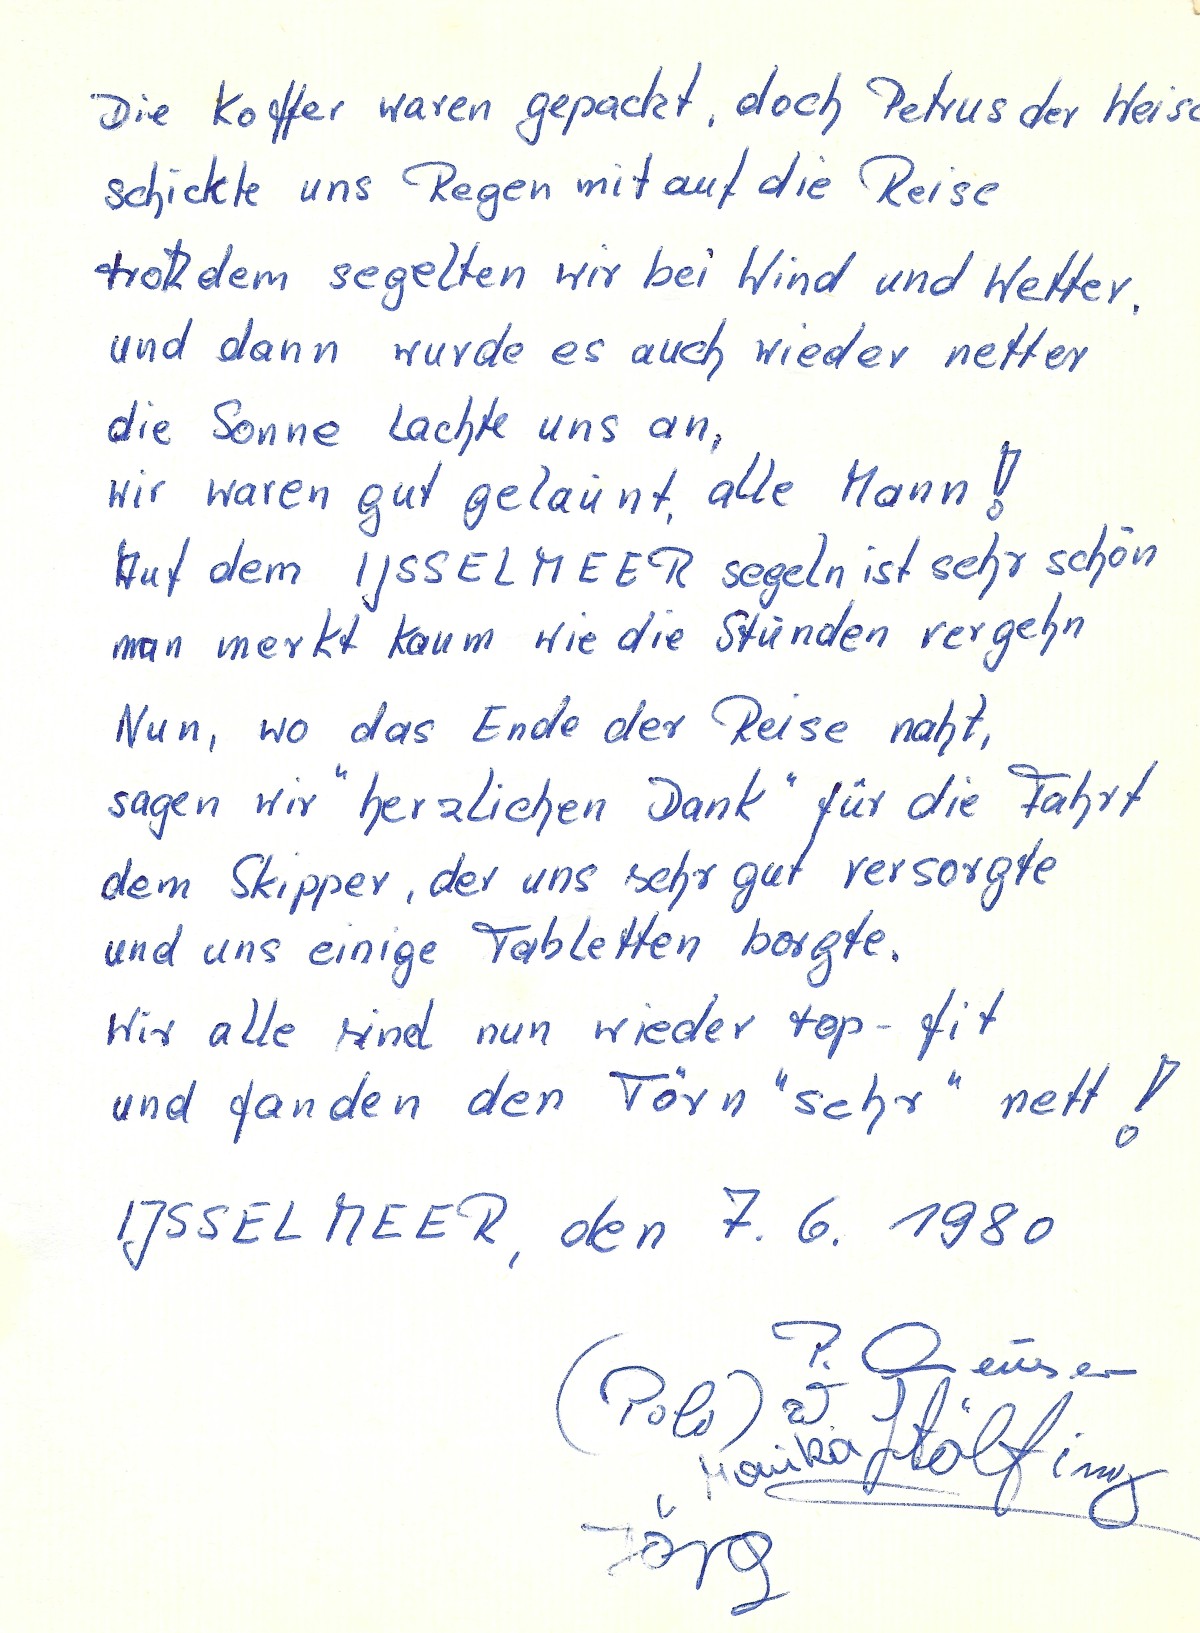 Die Koffer waren gepackt, doch Petrus der Weise
schickte uns Regen mit auf die Reise
trotzdem segelten wir bei Wind und Wetter,
und dann wurde es auch wieder netter
die Sonne lachte uns an,
wir waren gut gelaunt, alle Mann!
Auf dem IJSSELMEER segeln ist sehr schön
man merkt kaum wie die Stunden vergehn
Nun, wo das Ende der Reise naht,
sagen wir "herzlichen Dank" für die Fahrt
dem Skipper, der uns sehr gut versorgte
und uns einige Tabletten borgte.
Wir alle sind nun wieder top-fit
und fanden den Törn "sehr" nett!
IJSSELMEER, den 7. 6. 1980
P.
(Polo)
Monika
Jörg